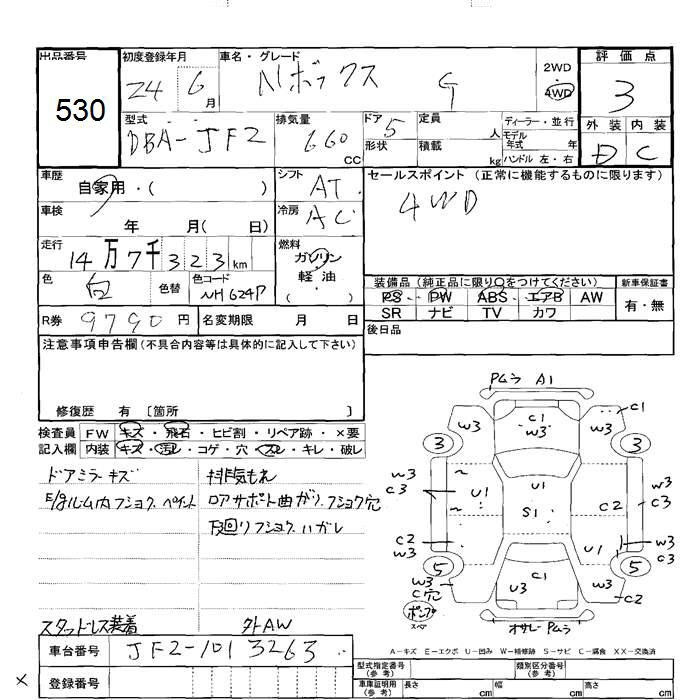 出品番号 初度登録年月 車名・グレード 2WD 評価点
530 24 6月 Nボックス G 4WD 3
型式 排気量 ドア 定員 人 ディーラー・並行 外装 内装
DBA-JF2 660 cc 5 形状 積載 kg モデル年式 年 D C
ハンドル 左・右
車歴 シフト セールスポイント(正常に機能するものに限ります)
自家用・( ) AT 4WD
車検 冷房
年 月( 日) AC
走行 燃料
14万7千323km ガソリン
軽・油
( )
色 色替 色コード 装備品(純正品に限り○をつけてください) 新車保証書
白 NH624P PS PW ABS エアB AW 有・無
SR ナビ TV カワ
R券 9790円 名変期限 月 日 後日品
注意事項申告欄(不具合内容等は具体的に記入して下さい)
修復歴 有 〔箇所 〕
検査員 FW キズ・飛石・ヒビ割・リペア跡・×要
記入欄 内装 キズ・汚レ・コゲ・穴・スレ・キレ・破レ
ドアミラーキズ 排気もれ
E/gルーム内フショク、ペイント ロアサポート曲がり、フショク穴
下回りフショク、ハガレ
スタッドレス装着 外AW
車台番号 JF2-1013263
× 登録番号
Pムラ A1
W3 C1 W3 W3 C1
3 3
W3 C3 U1 U1 W3 C3
S1 C2
C2 W3 U1 W3
5 5
W3 C穴 U3 C1 C2
ポンプ スペア
オサレ・Pムラ
A―キズ E―エクボ U―凹み W―補修跡 S―サビ C―腐食 XX―交換済
型式指定番号(参考) 類別区分番号(参考)
車庫証明用(参考) 長さ cm 幅 cm 高さ cm